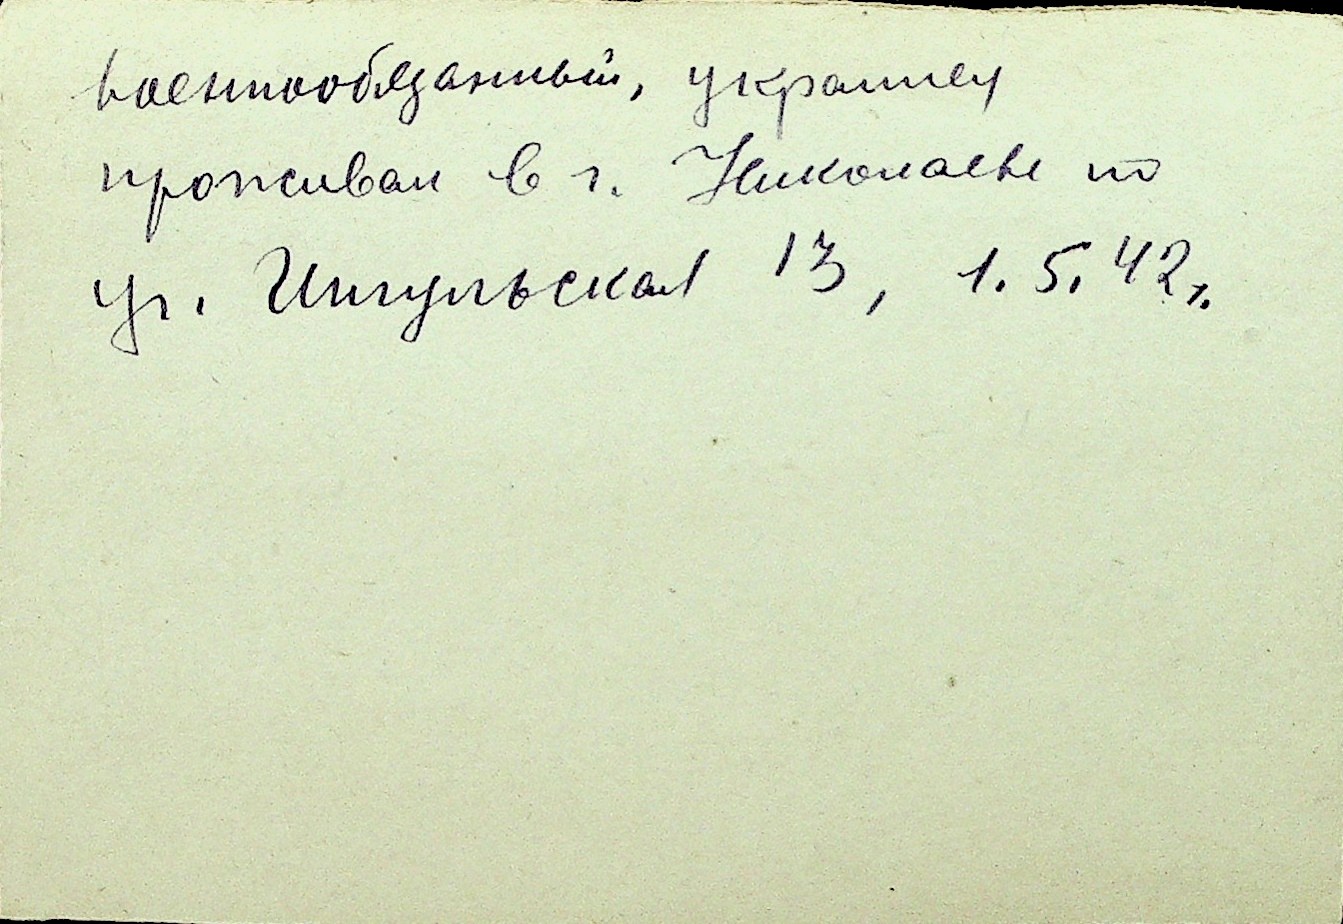 военнообязанный, украинец
проживал в г. Николаеве по
ул. Ингульская 13, 1.5.42г.